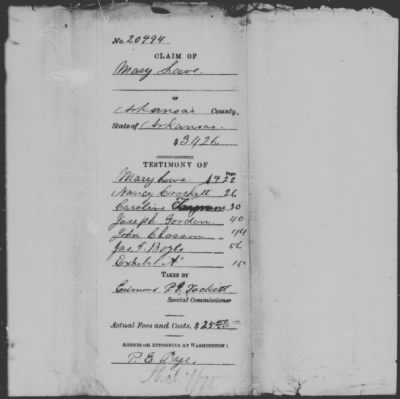 No. 20994
CLAIM OF
Mary Lowe.
OF
Arkansas County,
State of Arkansas.
$3,926
TESTIMONY OF
Mary Lowe
Nancy Crockett 26
Caroline 30
Joseph Gordon 40
John
Jas. F. Boyle
Exhibit "A"
TAKEN BY
P. Hackett
Special Commissioner
Actual Fees and Costs, $
AGENTS OR ATTORNEYS AT WASHINGTON:
P. E. Dye.